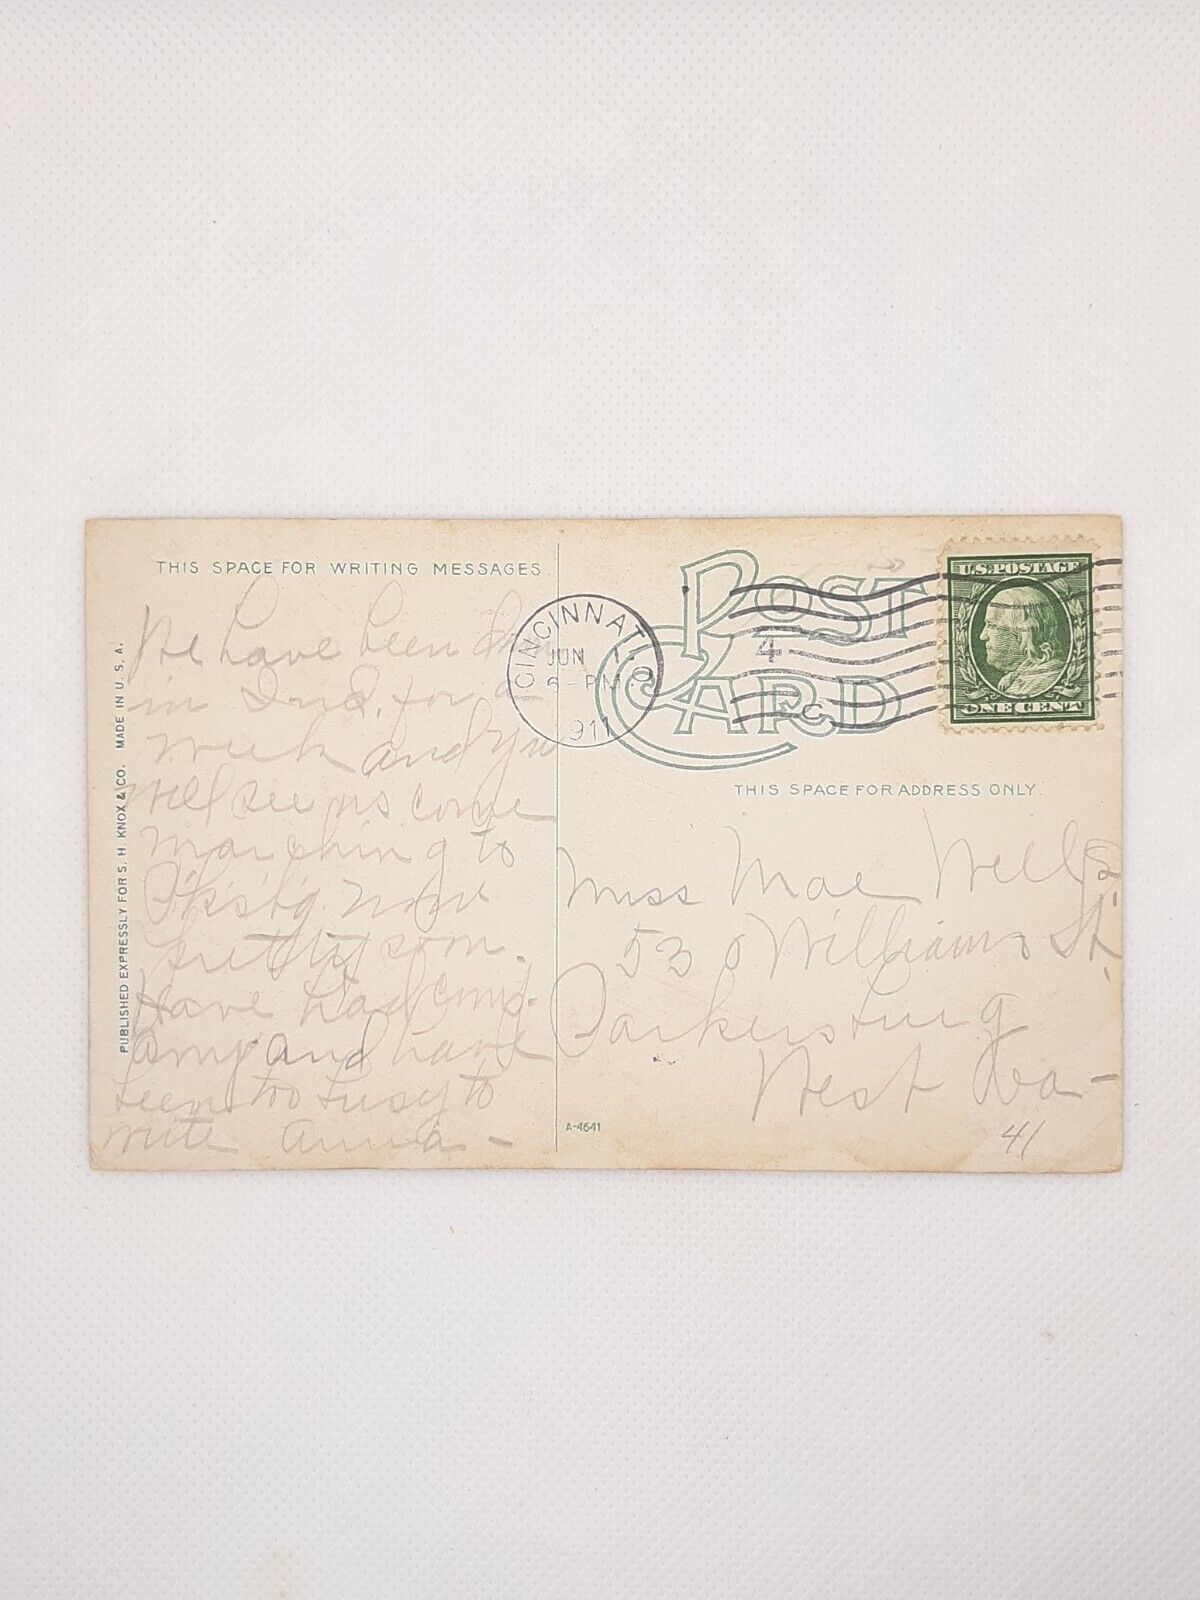 THIS SPACE FOR WRITING MESSAGES.
We have been
in Ind. for a
week and you
will see us come
marching to
P'k'sb'g. now
pretty soon.
Have had comp-
any and have
been too busy to
write Anna –
PUBLISHED EXPRESSLY FOR S. H. KNOX & CO. MADE IN U. S. A.
CINCINNATI O
JUN 4
PM
1911
C
POST CARD
U.S. POSTAGE
ONE CENT
THIS SPACE FOR ADDRESS ONLY.
Miss Mae Wells
530 Williams St.
Parkersburg
West Va –
41
A-4641